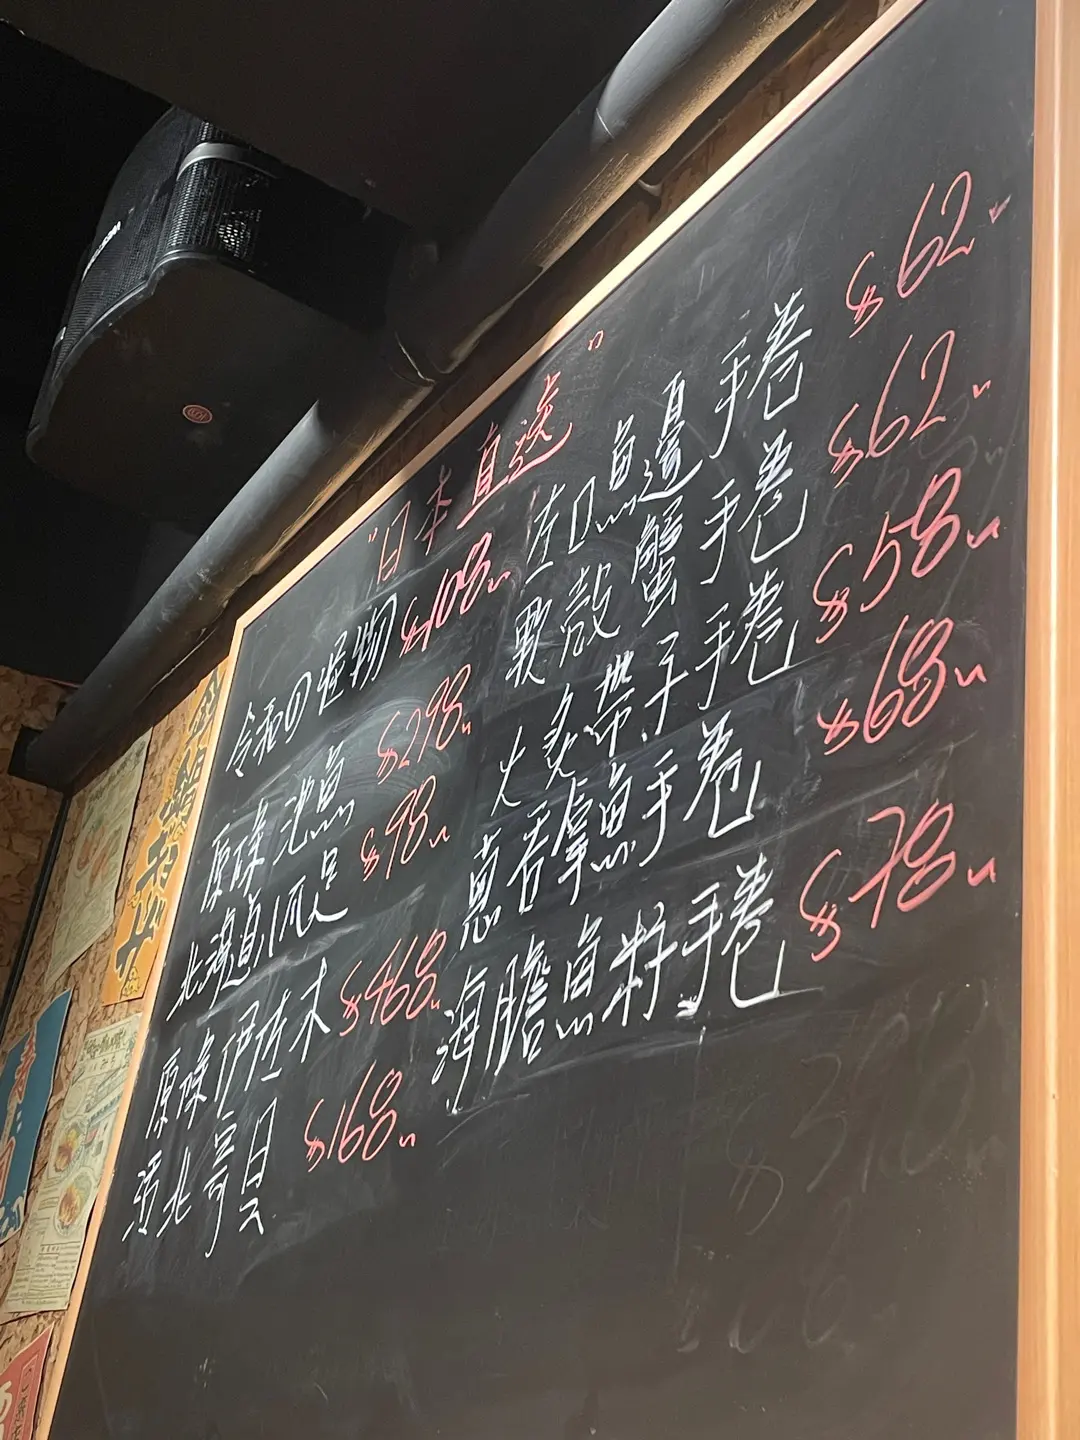 "日本直送"
令和の怪物 $108"
原條池魚 $298"
北海道 $98"
原條伊佐木 $468"
活北寄貝 $168"
左口魚邊手卷 $62"
軟殼蟹手卷 $62"
火炙帶子手卷 $58"
蔥吞拿魚手卷 $68"
海膽魚籽手卷 $78"